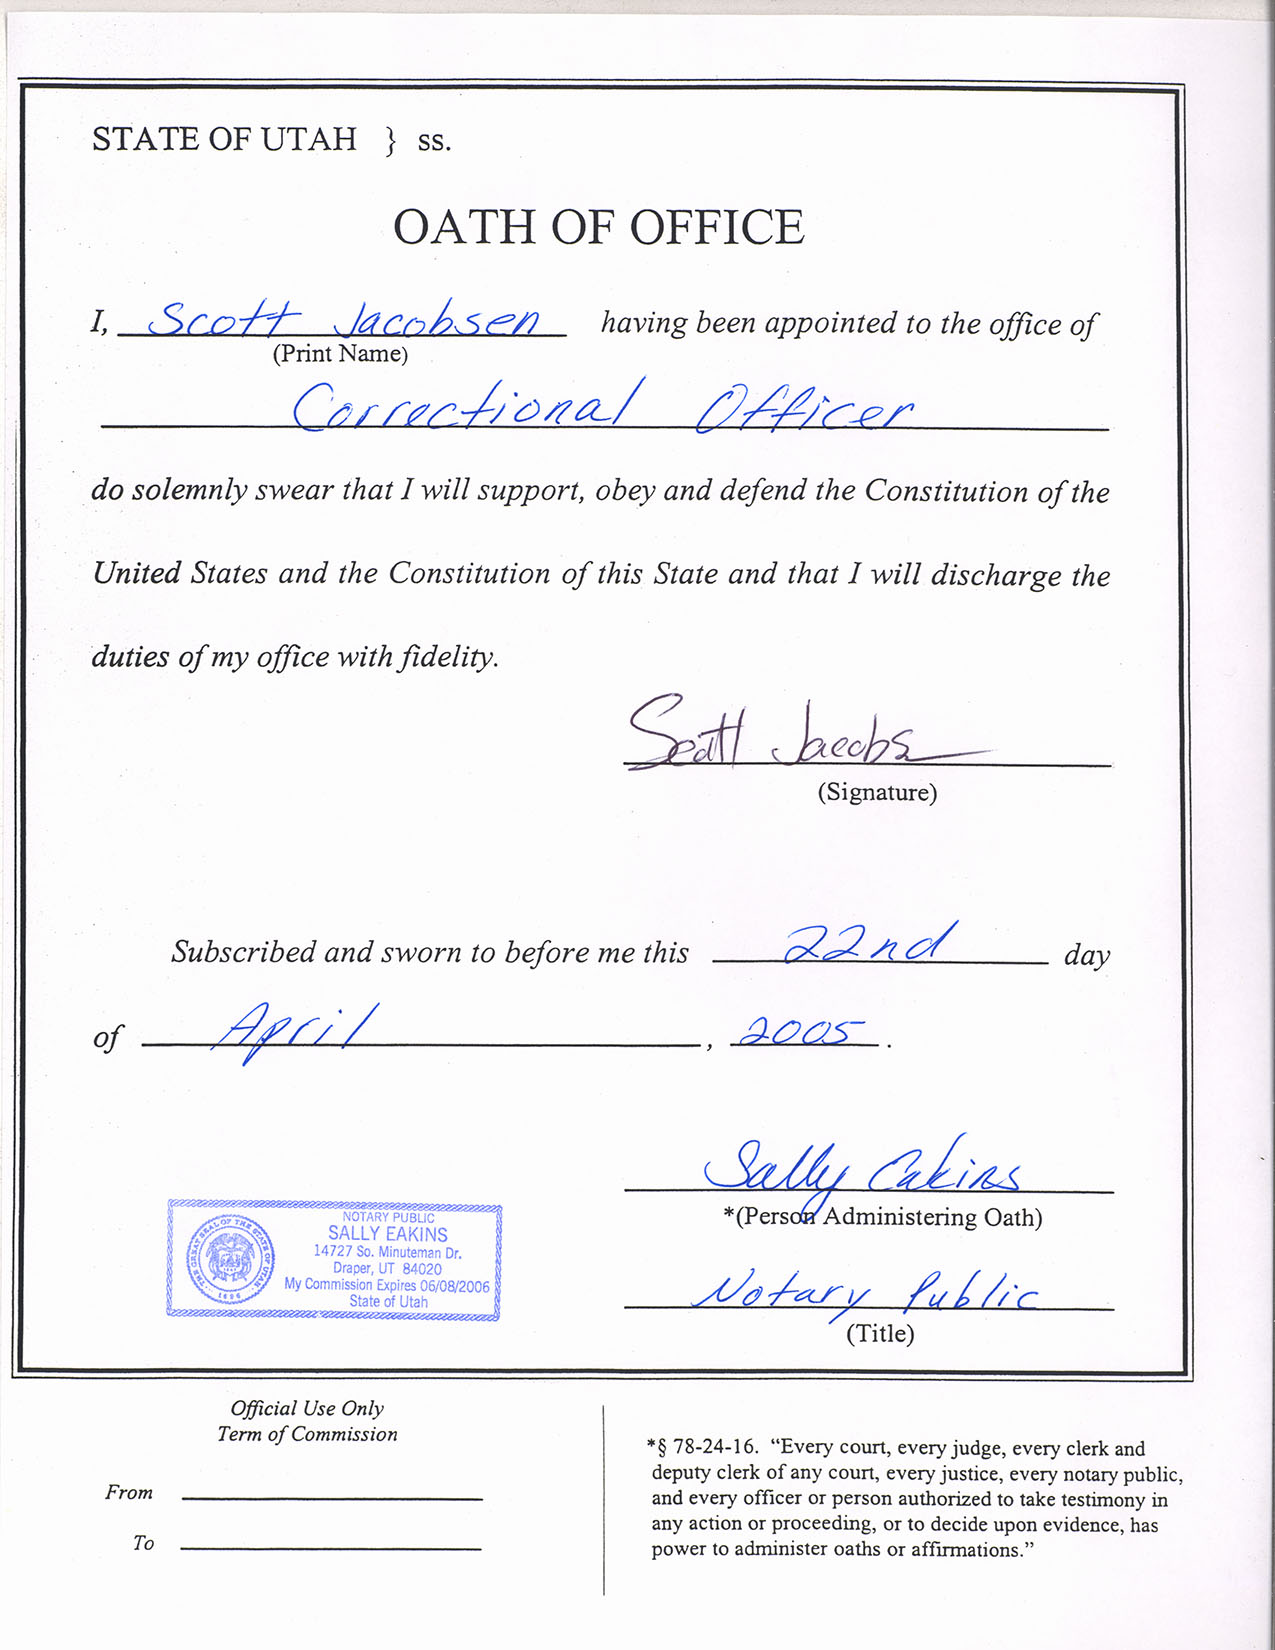 STATE OF UTAH } ss.
OATH OF OFFICE
I, Scott Jacobsen having been appointed to the office of
(Print Name)
Correctional Officer
do solemnly swear that I will support, obey and defend the Constitution of the
United States and the Constitution of this State and that I will discharge the
duties of my office with fidelity.
Scott Jacobs
(Signature)
Subscribed and sworn to before me this 22nd day
of April, 2005.
Sally Eakins
*(Person Administering Oath)
Notary Public
(Title)
THE GREAT SEAL OF THE STATE OF UTAH
1896
NOTARY PUBLIC
SALLY EAKINS
14727 So. Minuteman Dr.
Draper, UT 84020
My Commission Expires 06/08/2006
State of Utah
Official Use Only
Term of Commission
From
To
*§ 78-24-16. “Every court, every judge, every clerk and
deputy clerk of any court, every justice, every notary public,
and every officer or person authorized to take testimony in
any action or proceeding, or to decide upon evidence, has
power to administer oaths or affirmations.”